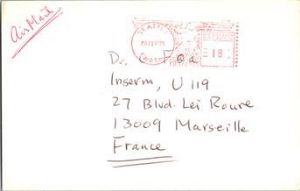 Air Mail
Dr. Foa
Inserm, U 119
27 Blvd. Lei Roure
13009 Marseille
France
18